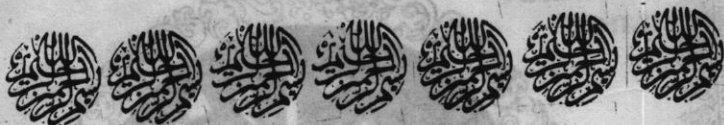 بسم الله الرحمن الرحيم بسم الله الرحمن الرحيم بسم الله الرحمن الرحيم بسم الله الرحمن الرحيم بسم الله الرحمن الرحيم بسم الله الرحمن الرحيم بسم الله الرحمن الرحيم